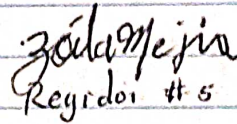 Zoila Mejia
Regidor # 5